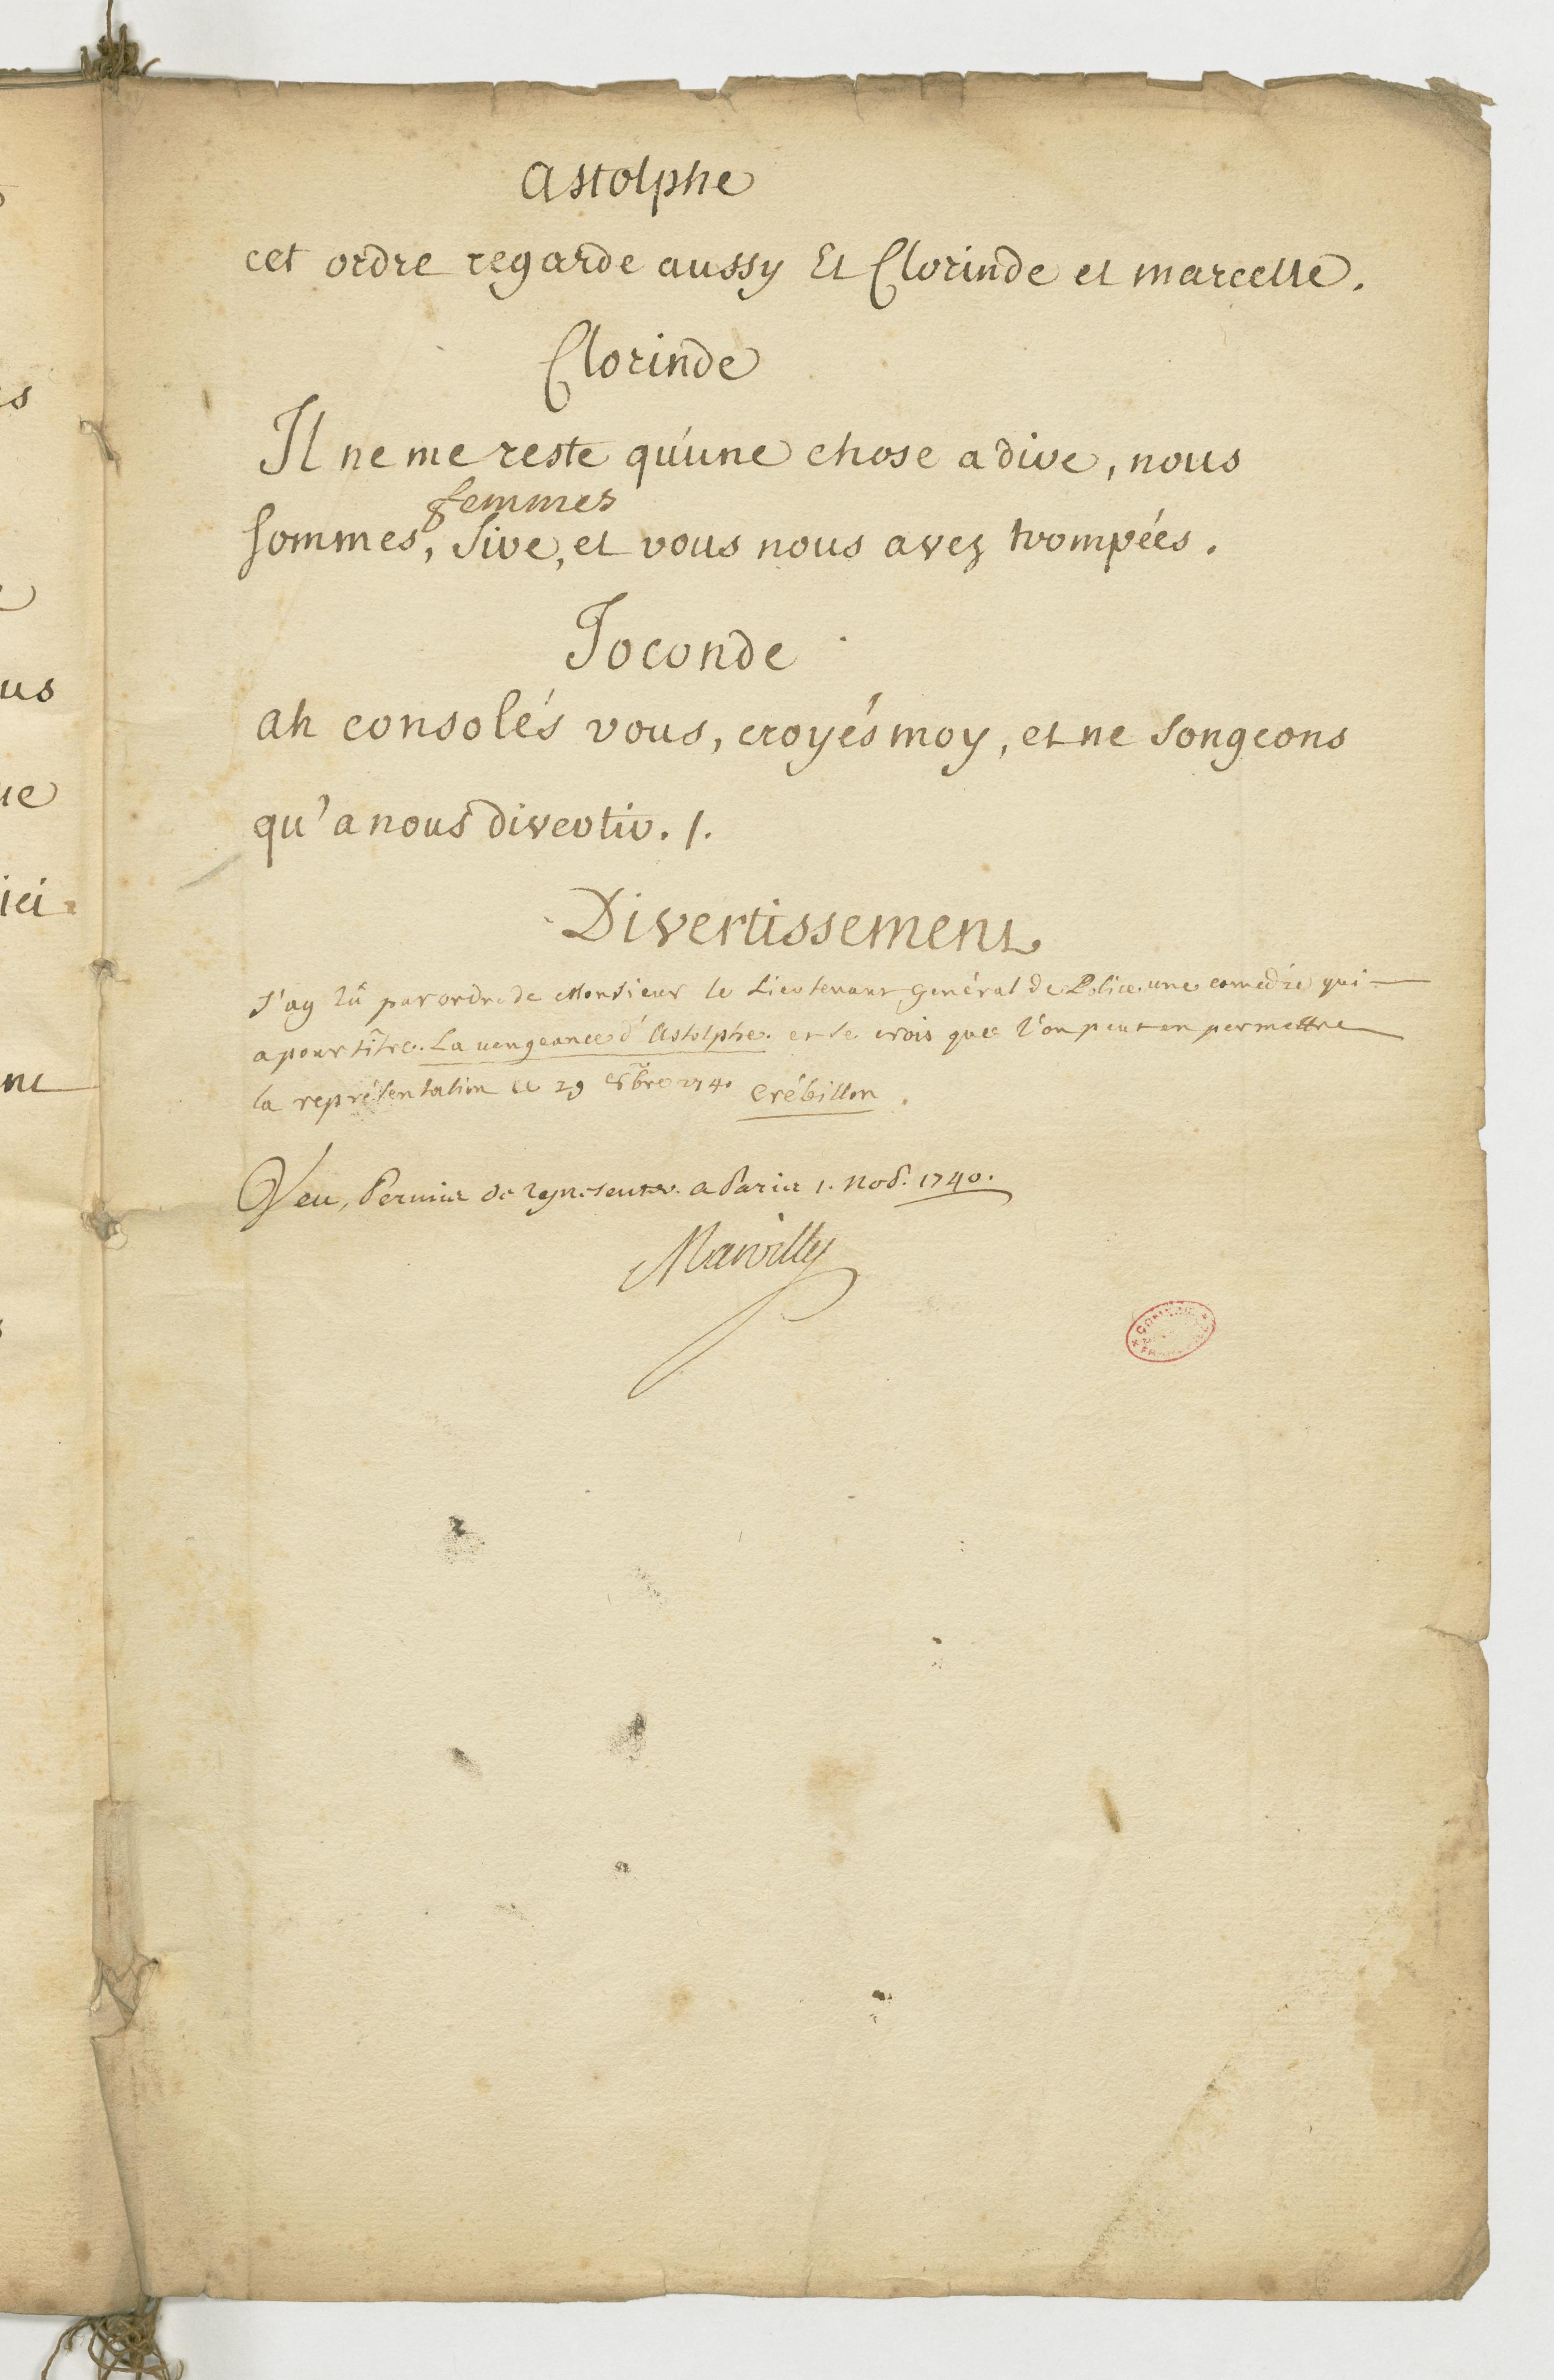 s
us
ue
ici.
nt
Astolphe
cet ordre regarde aussy Et Clorinde et marcelle.
Clorinde
Il ne me reste qu'une chose a dire, nous
femmes
sommes, Sire, et vous nous avez trompées.
Joconde
ah consolés vous, croyés moy, et ne songeons
qu'a nous divertir. /.
Divertissement
J'ay lû par ordre de Monsieur le Lieutenant général de Police une comedie qui
a pour titre. La vengeance d'Astolphe. et je crois que l'on peut en permettre
la représentation ce 29 8bre 1740 Crébillon.
Veu, Permis de representer. a Paris 1. Nov. 1740.
Marville